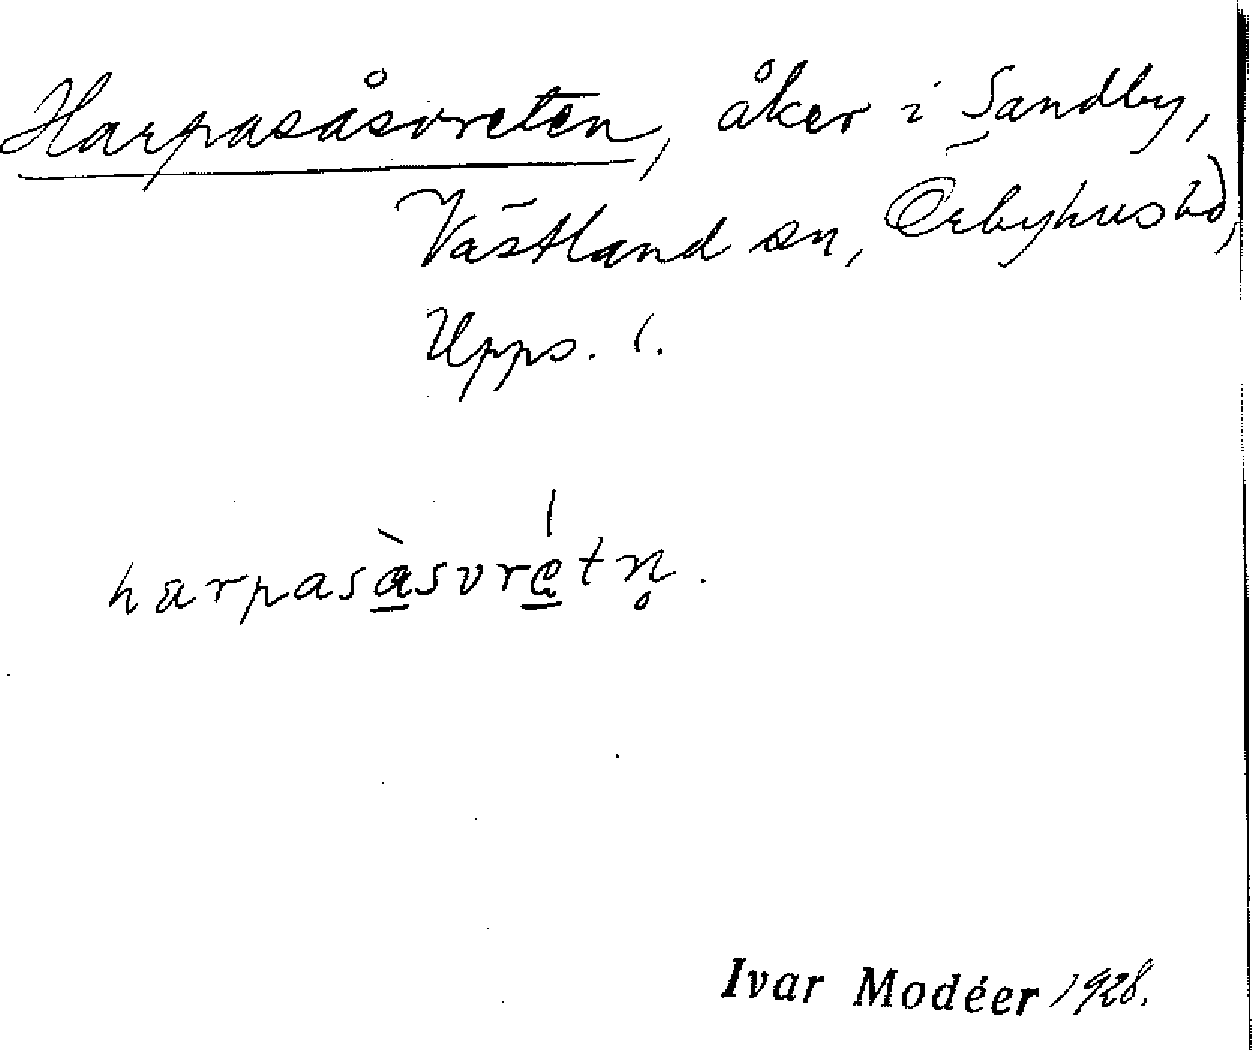 Harpasåsvreten, åker i Sandby,
Västland sn, Örbyhus hd,
Upps. l.
harpasàsvrétn̥.
Ivar Modéer 1928.